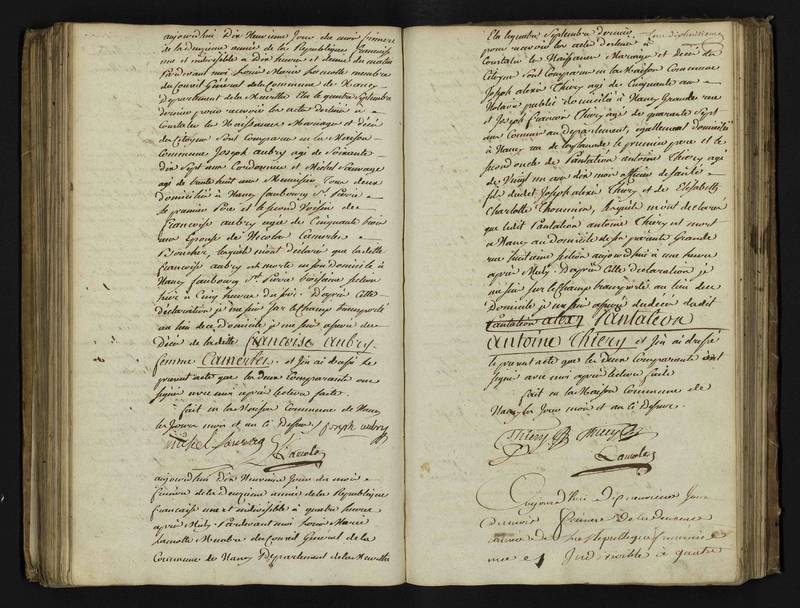 aujourdhui Dix Neuvieme Jour du mois frimaire
de la Deuxieme année de la Republique francaise
une et indivisible a Dix heures et demie du matin
Pardevant moi Louis Marie Lamolle membre
du Conseil General de la Commune de Nancy
Departement de la Meurthe Elu le quatre Septembre
dernier pour recevoir les actes destinés à
Constater les Naissances Mariages et décès
des Citoyens Sont Comparus en la Maison
Commune Joseph aubry agé de Soixante
Dix Sept ans Cordonnier et Michel Sauvage
agé de trente huit ans Menuisier, tous deux
Domiciliés à Nancy faubourg St. Pierre
le premier Pere et le second Voisin de
francoise aubry agée de Cinquante trois
ans Epouse de Nicolas Camerlet
Boucher, lesquels m'ont déclaré que ladite
francoise aubry est morte en son domicile à
Nancy faubourg St. Pierre troisieme section
hier à Cinq heures du soir. D'après Cette
déclaration je me suis sur le Champ transporté
au lieu de Ce domicile je me suis assuré du
Décès de ladite francoise Aubry
femme Camerlet. et J'en ai dressé le
present acte que les deux Comparants ont
signé avec moi après lecture faite.
fait en la Maison Commune de Nancy
les Jour mois et an Ci Dessus / joseph aubry
Michel Sauvage
Lamolle
aujourdhui Dix Neuvieme Jour du mois
frimaire de la Deuxieme année de la Republique
francaise une et indivisible à quatre heures
après Midy Pardevant moi Louis Marie
Lamolle Membre du Conseil General de la
Commune de Nancy Departement de la Meurthe
Elu le quatre Septembre dernier
pour recevoir les actes destinés à
Constater les Naissances Mariages et Décès des
Citoyens Sont Comparus en la Maison Commune
Joseph alexis Thiery agé de Cinquante ans
Notaire public domicilié à Nancy Grande rue
et Joseph francois Thiery agé de quarante Sept
ans Commis au departement, egallement domicilié
à Nancy rue de la le premier pere et le
second oncle de Pantaléon antoine Thiery agé
de Vingt un ans dix mois officier de Santé
fils dudit Joseph alexis Thiery et de Elisabeth
Charlotte Thouvenin, lesquels m'ont declaré
que ledit Pantaléon antoine Thiery est mort
à Nancy au domicile de ses parents Grande
rue huitieme section aujourdhui à une heure
après Midy. D'après Cette déclaration je
me suis sur le Champ transporté au lieu de Ce
Domicile je me suis assuré du décès dudit
Pantaléon alexis Pantaléon
Antoine Thiery et J'en ai dressé
le present acte que les deux Comparants ont
signé avec moi après lecture faite
fait en la Maison Commune de
Nancy les Jour mois et an Ci Dessus.
Thiery Thiery
Lamolle
Aujourdhuy dixneuvieme Jour
du mois frimaire de la deuxieme
année de la Republique francaise
une et Indivisible à quatre